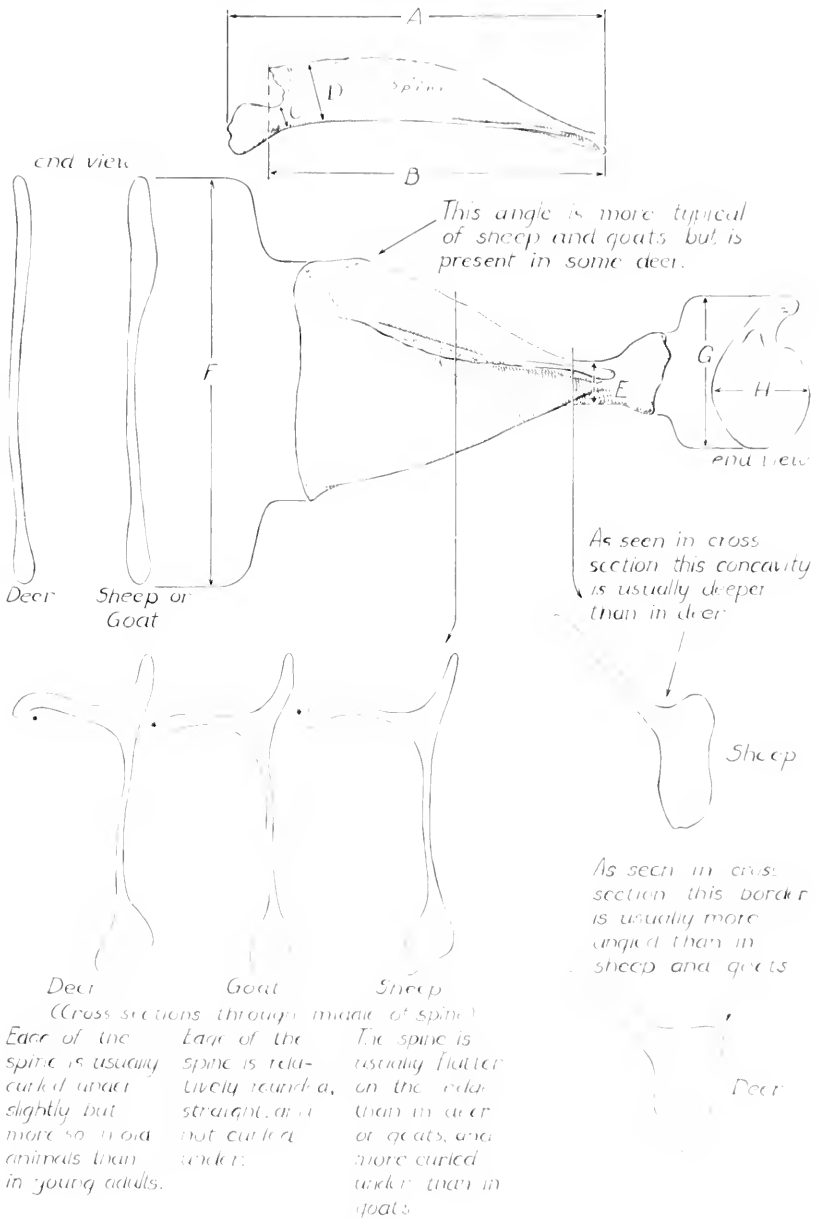 A
D
Spine
C
B
end view
This angle is more typical
of sheep and goats but is
present in some deer.
F
E
G
H
end view
Deer
Sheep or
Goat
As seen in cross
section this concavity
is usually deeper
than in deer
Sheep
As seen in cross
section this border
is usually more
angled than in
sheep and goats
Deer
Deer
Goat
Sheep
(Cross sections through middle of spine)
Edge of the
spine is usually
curled under
slightly but
more so in old
animals than
in young adults.
Edge of the
spine is rela-
tively rounded,
straight, and
not curled
under.
The spine is
usually flatter
on the edge
than in deer
or goats, and
more curled
under than in
goats